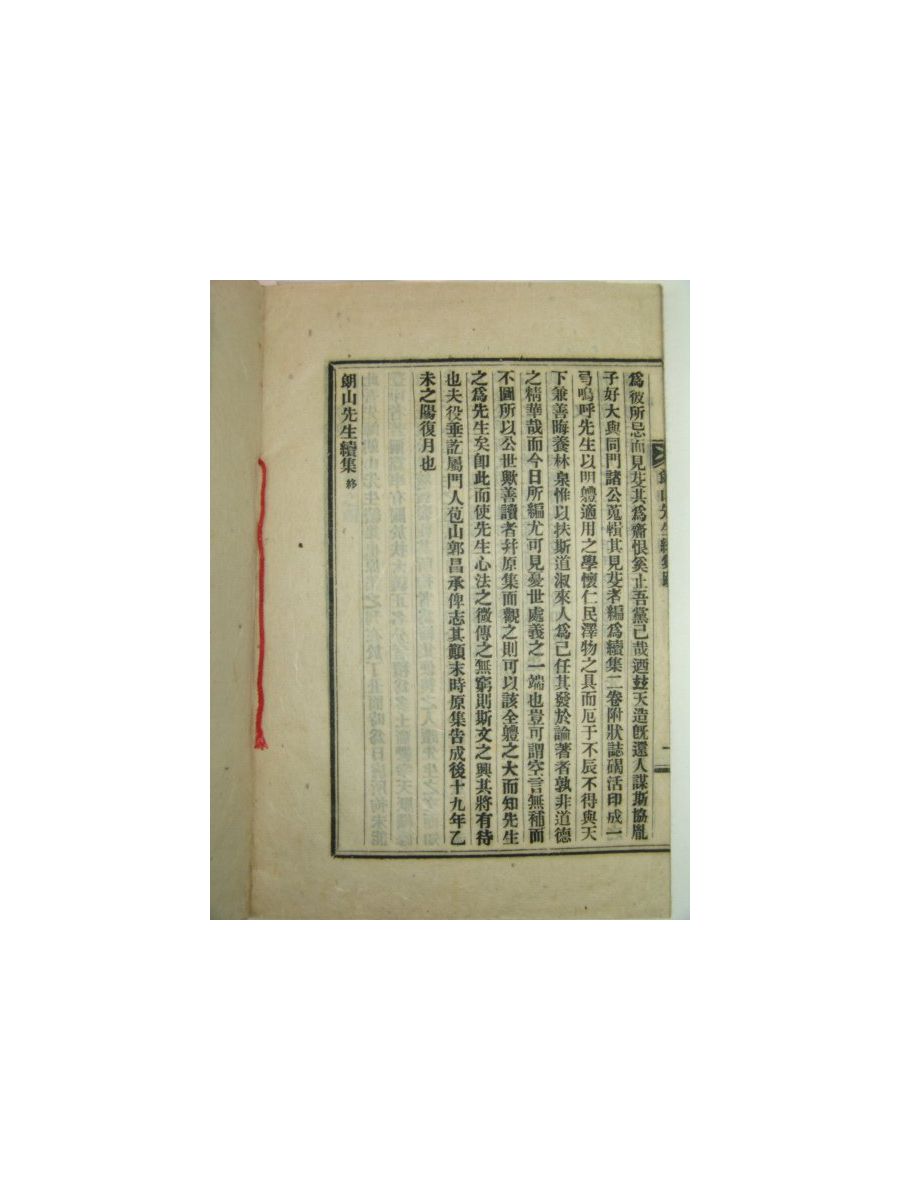 爲彼所忌而見芟其爲齎恨奚止吾黨已哉迺玆天造旣還人謀斯協胤
子好大與同門諸公蒐輯其見芟者編爲續集二卷附狀誌碣活印成一
弓嗚呼先生以明軆適用之學懷仁民澤物之具而厄于不辰不得與天
下兼善晦養林泉惟以扶斯道淑來人爲己任其發於論著者孰非道德
之精華哉而今日所編尤可見憂世處義之一端也豈可謂空言無補而
不圖所以公世歟善讀者幷原集而觀之則可以該全軆之大而知先生
之爲先生矣卽此而使先生心法之微傳之無窮則斯文之興其將有待
也夫役垂訖屬門人苞山郭昌承俾志其顚末時原集告成後十九年乙
未之陽復月也
朗山先生續集 終